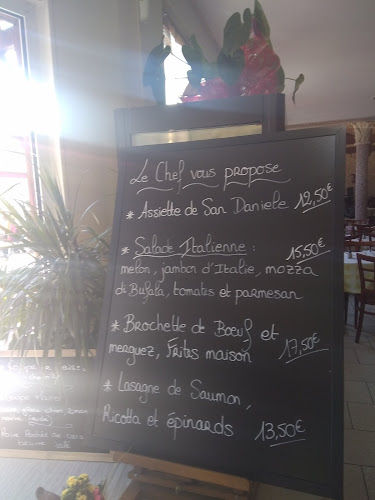 Le Chef vous propose
* Assiette de San Daniele 12,50€
* Salade Italienne : 15,50€
melon, jambon d'Italie, mozza
di Bufala, tomates et parmesan
* Brochette de Boeuf et
merguez, Frites maison 17,50€
* Lasagne de Saumon,
Ricotta et épinards 13,50€